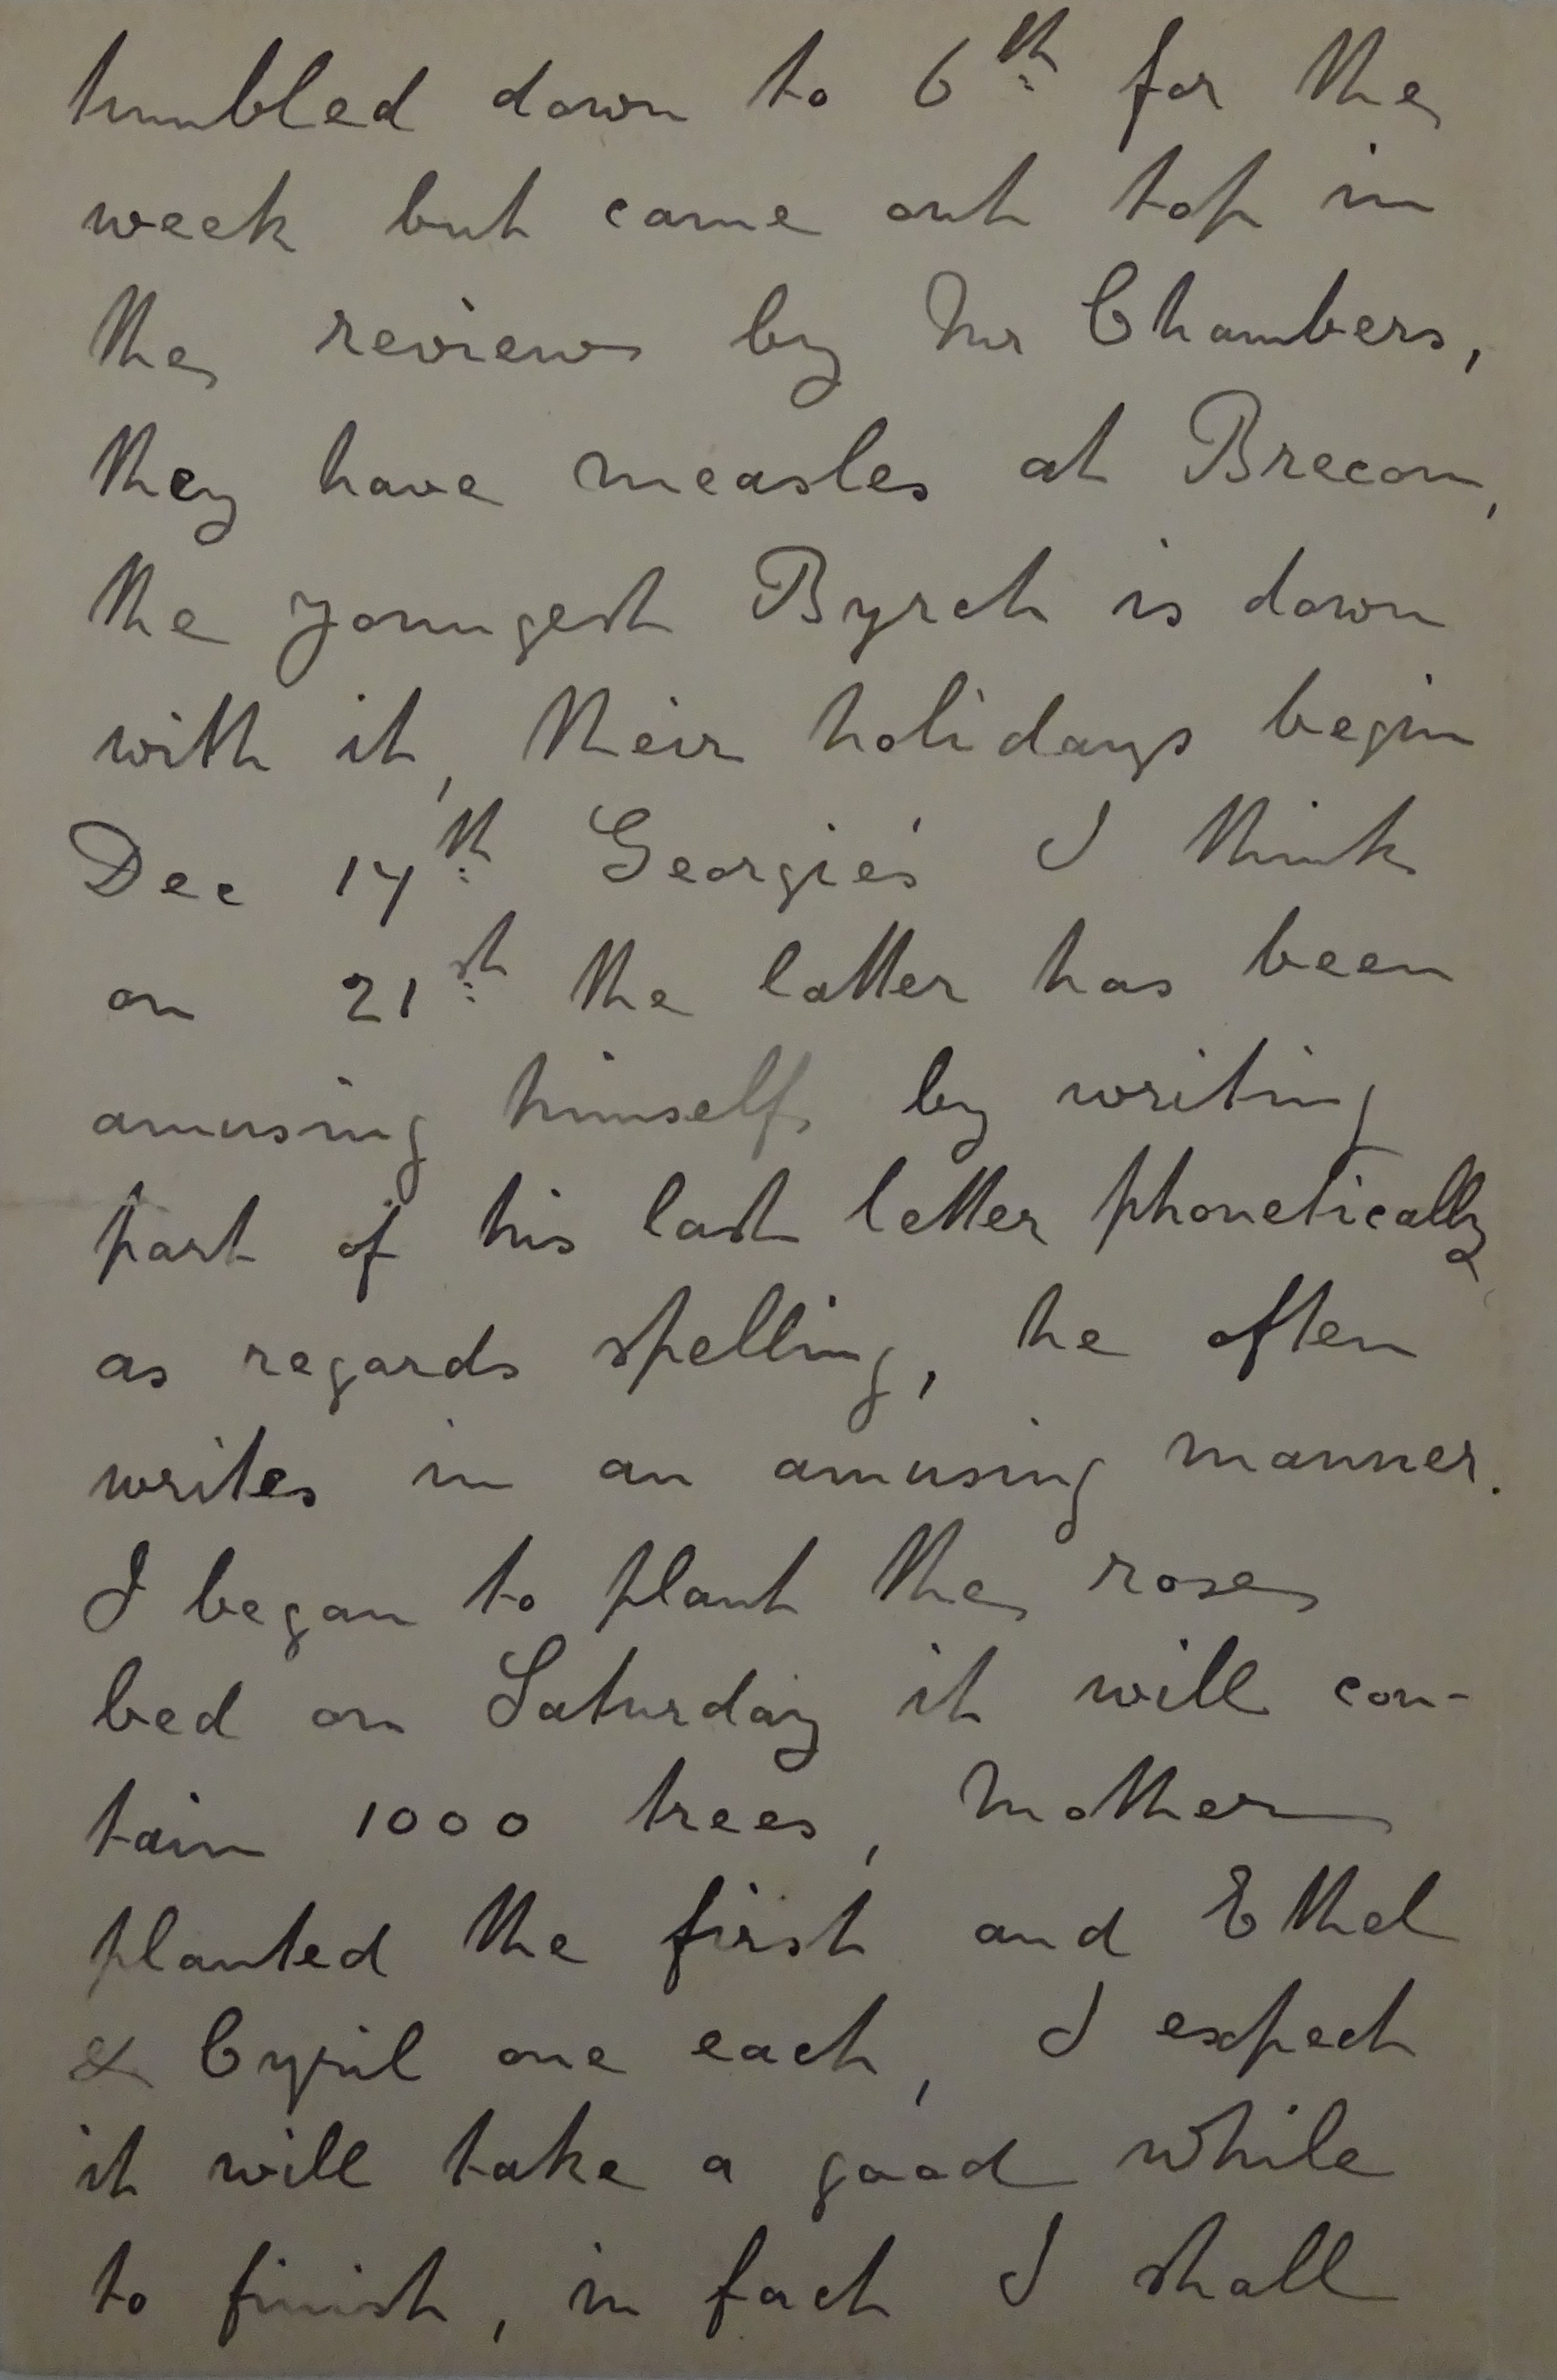 tumbled down to 6th for the
week but came out top in
the reviews by Mr Chambers,
they have measles at Brecon,
the youngest Byrch is down
with it, their holidays begin
Dec 14th Georgie's I think
on 21st the latter has been
amusing himself by writing
part of his last letter phonetically
as regards spelling, he often
writes in an amusing manner.
I began to plant the rose
bed on Saturday it will con-
tain 1000 trees, Mother
planted the first and Ethel
& Cyril one each, I expect
it will take a good while
to finish, in fact I shall